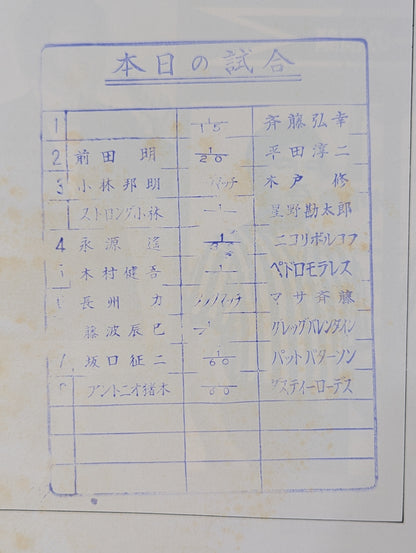 本日の試合
1 1/15 斉藤弘幸
2 前田 明 1/20 平田淳二
3 小林邦明 マッチ 木戸 修
ストロング小林 1 星野勘太郎
4 永源 遙 1 ニコリボルコフ
木村健吾 1 ペドロモラレス
長州 力 マッチ マサ斉藤
藤波辰巳 1 グレッグバレンタイン
坂口征二 1/60 パットパターソン
アントニオ猪木 60 ダスティーローデス